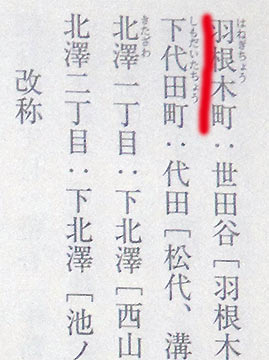 羽根木町：世田谷［羽根木
はねぎちょう
下代田町：代田［松代、溝
しもだいたちょう
北澤一丁目：下北澤［西山
きたざわ
北澤二丁目：下北澤［池ノ
改称